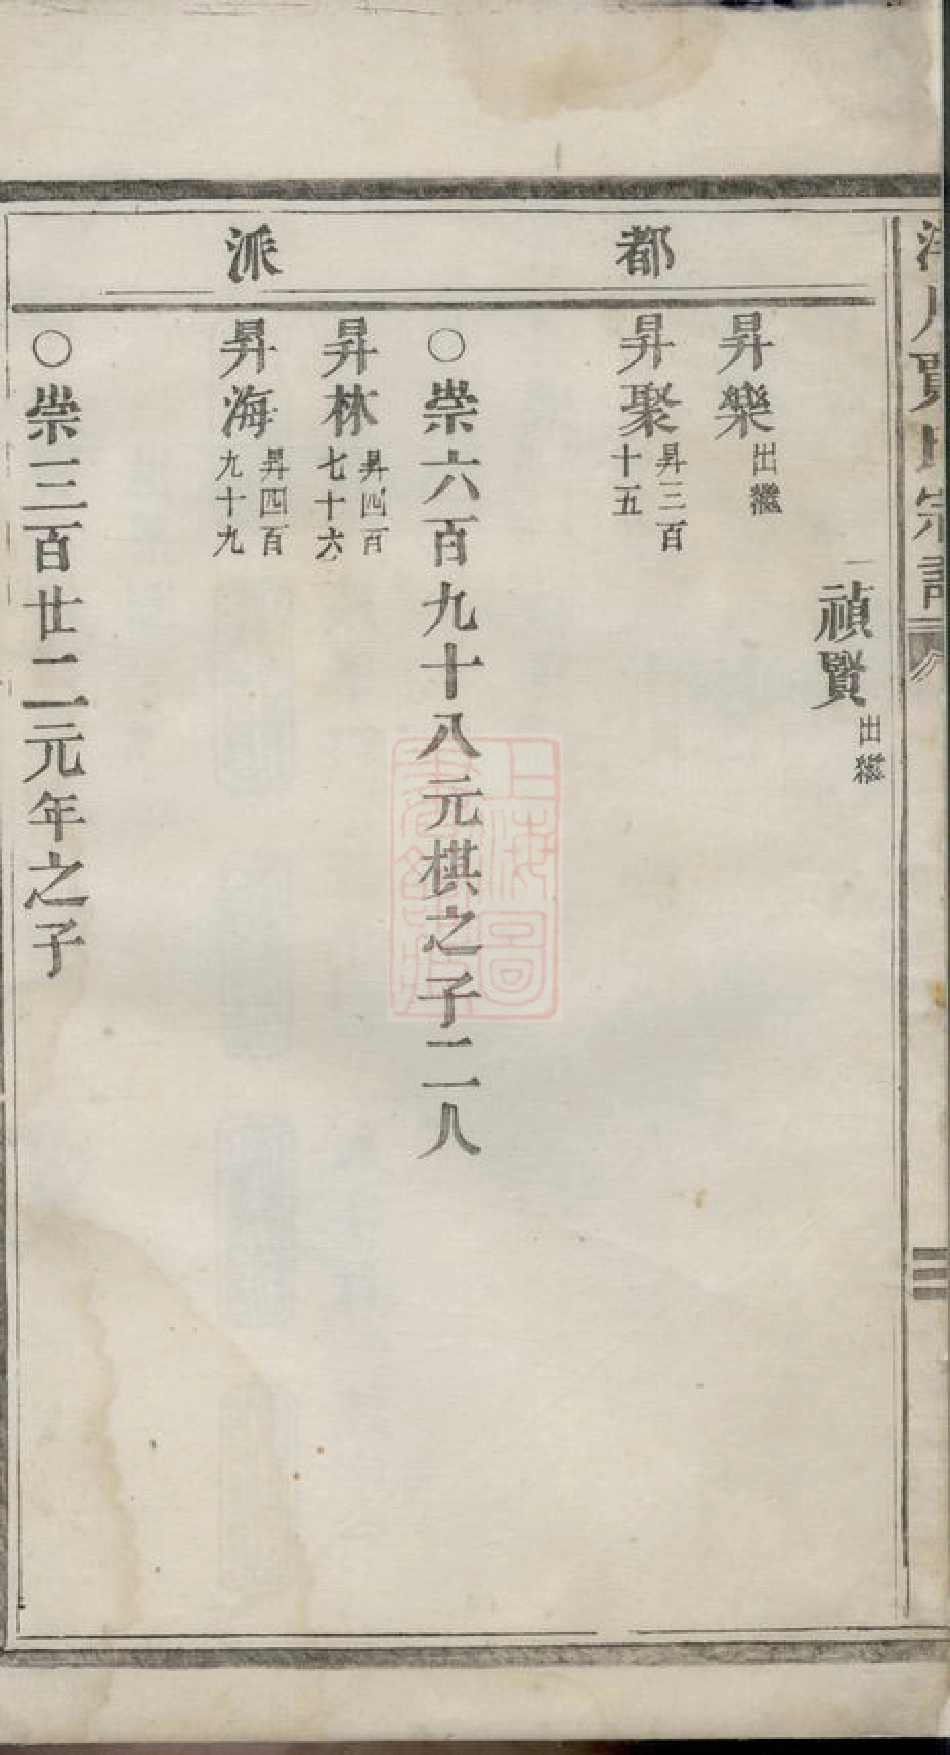 都
派
禎賢出繼
昇樂出繼
昇聚昇三百
十五
○崇六百九十八元棋之子二人
昇林昇四百
七十六
昇海昇四百
九十九
○崇三百廿二元年之子
上海圖